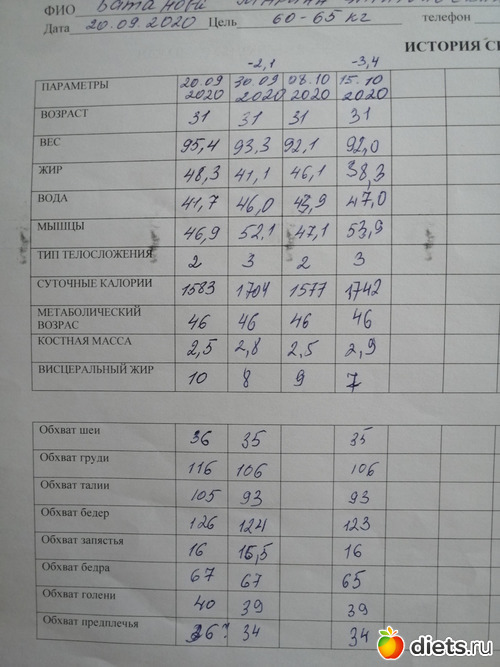 ФИО
Дата 20.09.2020 Цель 60-65 кг телефон
ИСТОРИЯ
-2,1 -3,4
ПАРАМЕТРЫ 20.09 2020 30.09 2020 08.10 2020 15.10 2020
ВОЗРАСТ 31 31 31 31
ВЕС 95,4 93,3 92,1 92,0
ЖИР 48,3 41,1 46,1 38,3
ВОДА 41,7 46,0 43,9 47,0
МЫШЦЫ 46,9 52,1 47,1 53,9
ТИП ТЕЛОСЛОЖЕНИЯ 2 3 2 3
СУТОЧНЫЕ КАЛОРИИ 1583 1704 1577 1742
МЕТАБОЛИЧЕСКИЙ
ВОЗРАС 46 46 46 46
КОСТНАЯ МАССА 2,5 2,8 2,5 2,9
ВИСЦЕРАЛЬНЫЙ ЖИР 10 8 9 7
Обхват шеи 36 35 35
Обхват груди 116 106 106
Обхват талии 105 93 93
Обхват бедер 126 124 123
Обхват запястья 16 15,5 16
Обхват бедра 67 67 65
Обхват голени 40 39 39
Обхват предплечья 36? 34 34
diets.ru